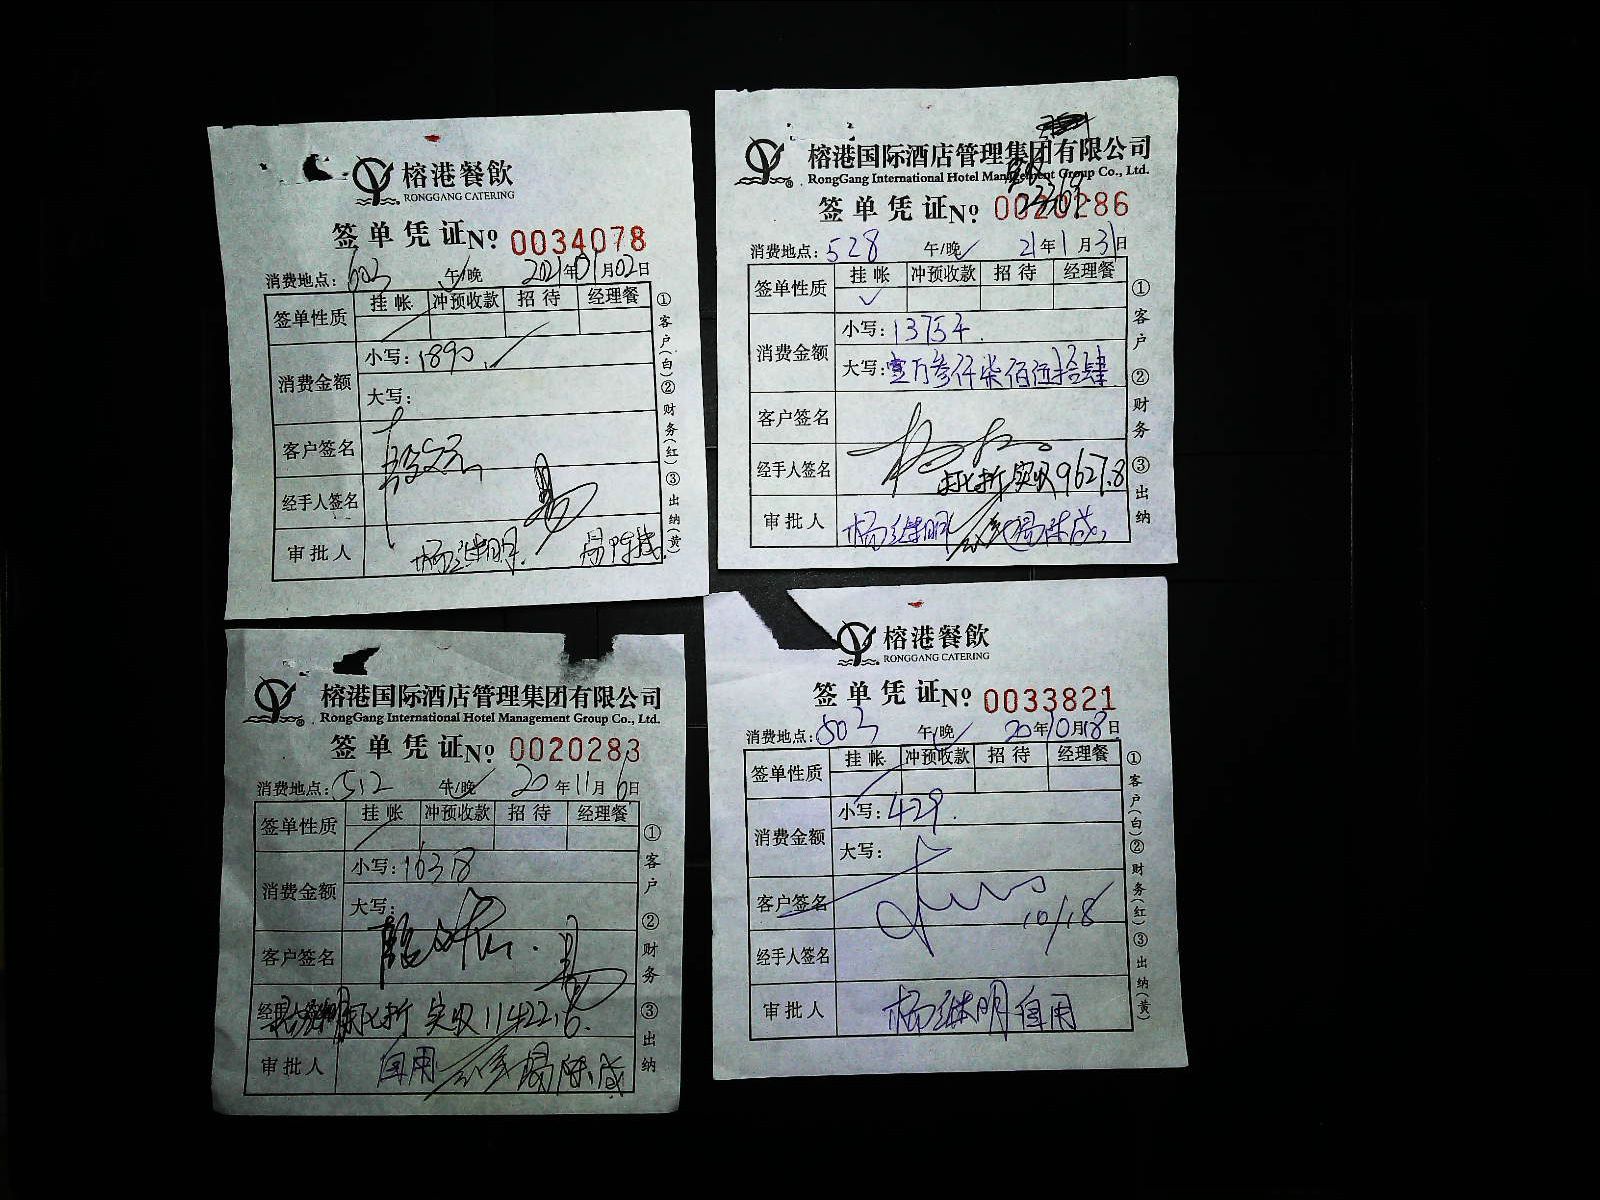 榕港餐飲
RONGGANG CATERING
签单凭证№ 0034078
消费地点：603 午/晚 2021年01月02日
签单性质 挂帐 冲预收款 招待 经理餐
消费金额 小写：1890.
大写：
客户签名
经手人签名
审批人 杨继明
①客户(白)②财务(红)③出纳(黄)
榕港国际酒店管理集团有限公司
RongGang International Hotel Management Group Co., Ltd.
签单凭证№ 0020286
消费地点：528 午/晚✓ 21年1月31日
签单性质 挂帐 冲预收款 招待 经理餐
✓
消费金额 小写：13754.
大写：壹万参仟柒佰伍拾肆
客户签名
经手人签名 打七折 实收9627.8
审批人 杨继明
①客户②财务③出纳
榕港国际酒店管理集团有限公司
RongGang International Hotel Management Group Co., Ltd.
签单凭证№ 0020283
消费地点：512 午/晚✓ 20年11月6日
签单性质 挂帐 冲预收款 招待 经理餐
消费金额 小写：16318
大写：
客户签名
打七折 实收11422.6.
审批人 自用
①客户②财务③出纳
榕港餐飲
RONGGANG CATERING
签单凭证№ 0033821
消费地点：803 午/晚✓ 20年10月18日
签单性质 挂帐 冲预收款 招待 经理餐
消费金额 小写：429.
大写：
客户签名 10/18
经手人签名
审批人 杨继明 自用
①客户(白)②财务(红)③出纳(黄)